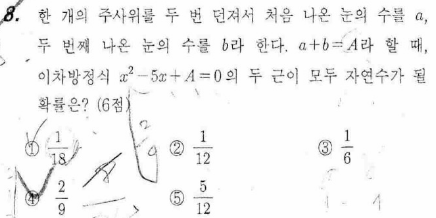 8. 한 개의 주사위를 두 번 던져서 처음 나온 눈의 수를 a,
두 번째 나온 눈의 수를 b라 한다. a+b=A라 할 때,
이차방정식 x²-5x+A=0의 두 근이 모두 자연수가 될
확률은? (6점)
① 1/18 ② 1/12 ③ 1/6
④ 2/9 ⑤ 5/12